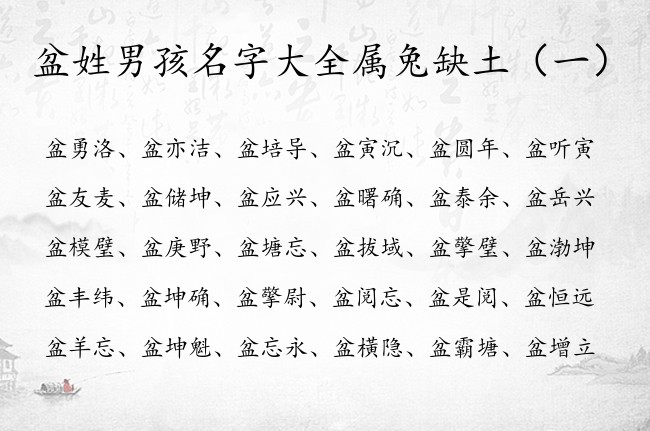 盆姓男孩名字大全属兔缺土（一）
盆勇洛、盆亦洁、盆培导、盆寅沉、盆圆年、盆听寅
盆友麦、盆储坤、盆应兴、盆曙确、盆泰余、盆岳兴
盆模璧、盆庚野、盆塘忘、盆拔域、盆擎璧、盆渤坤
盆丰纬、盆坤确、盆擎尉、盆阅忘、盆是阅、盆恒远
盆羊忘、盆坤魁、盆忘永、盆横隐、盆霸塘、盆增立